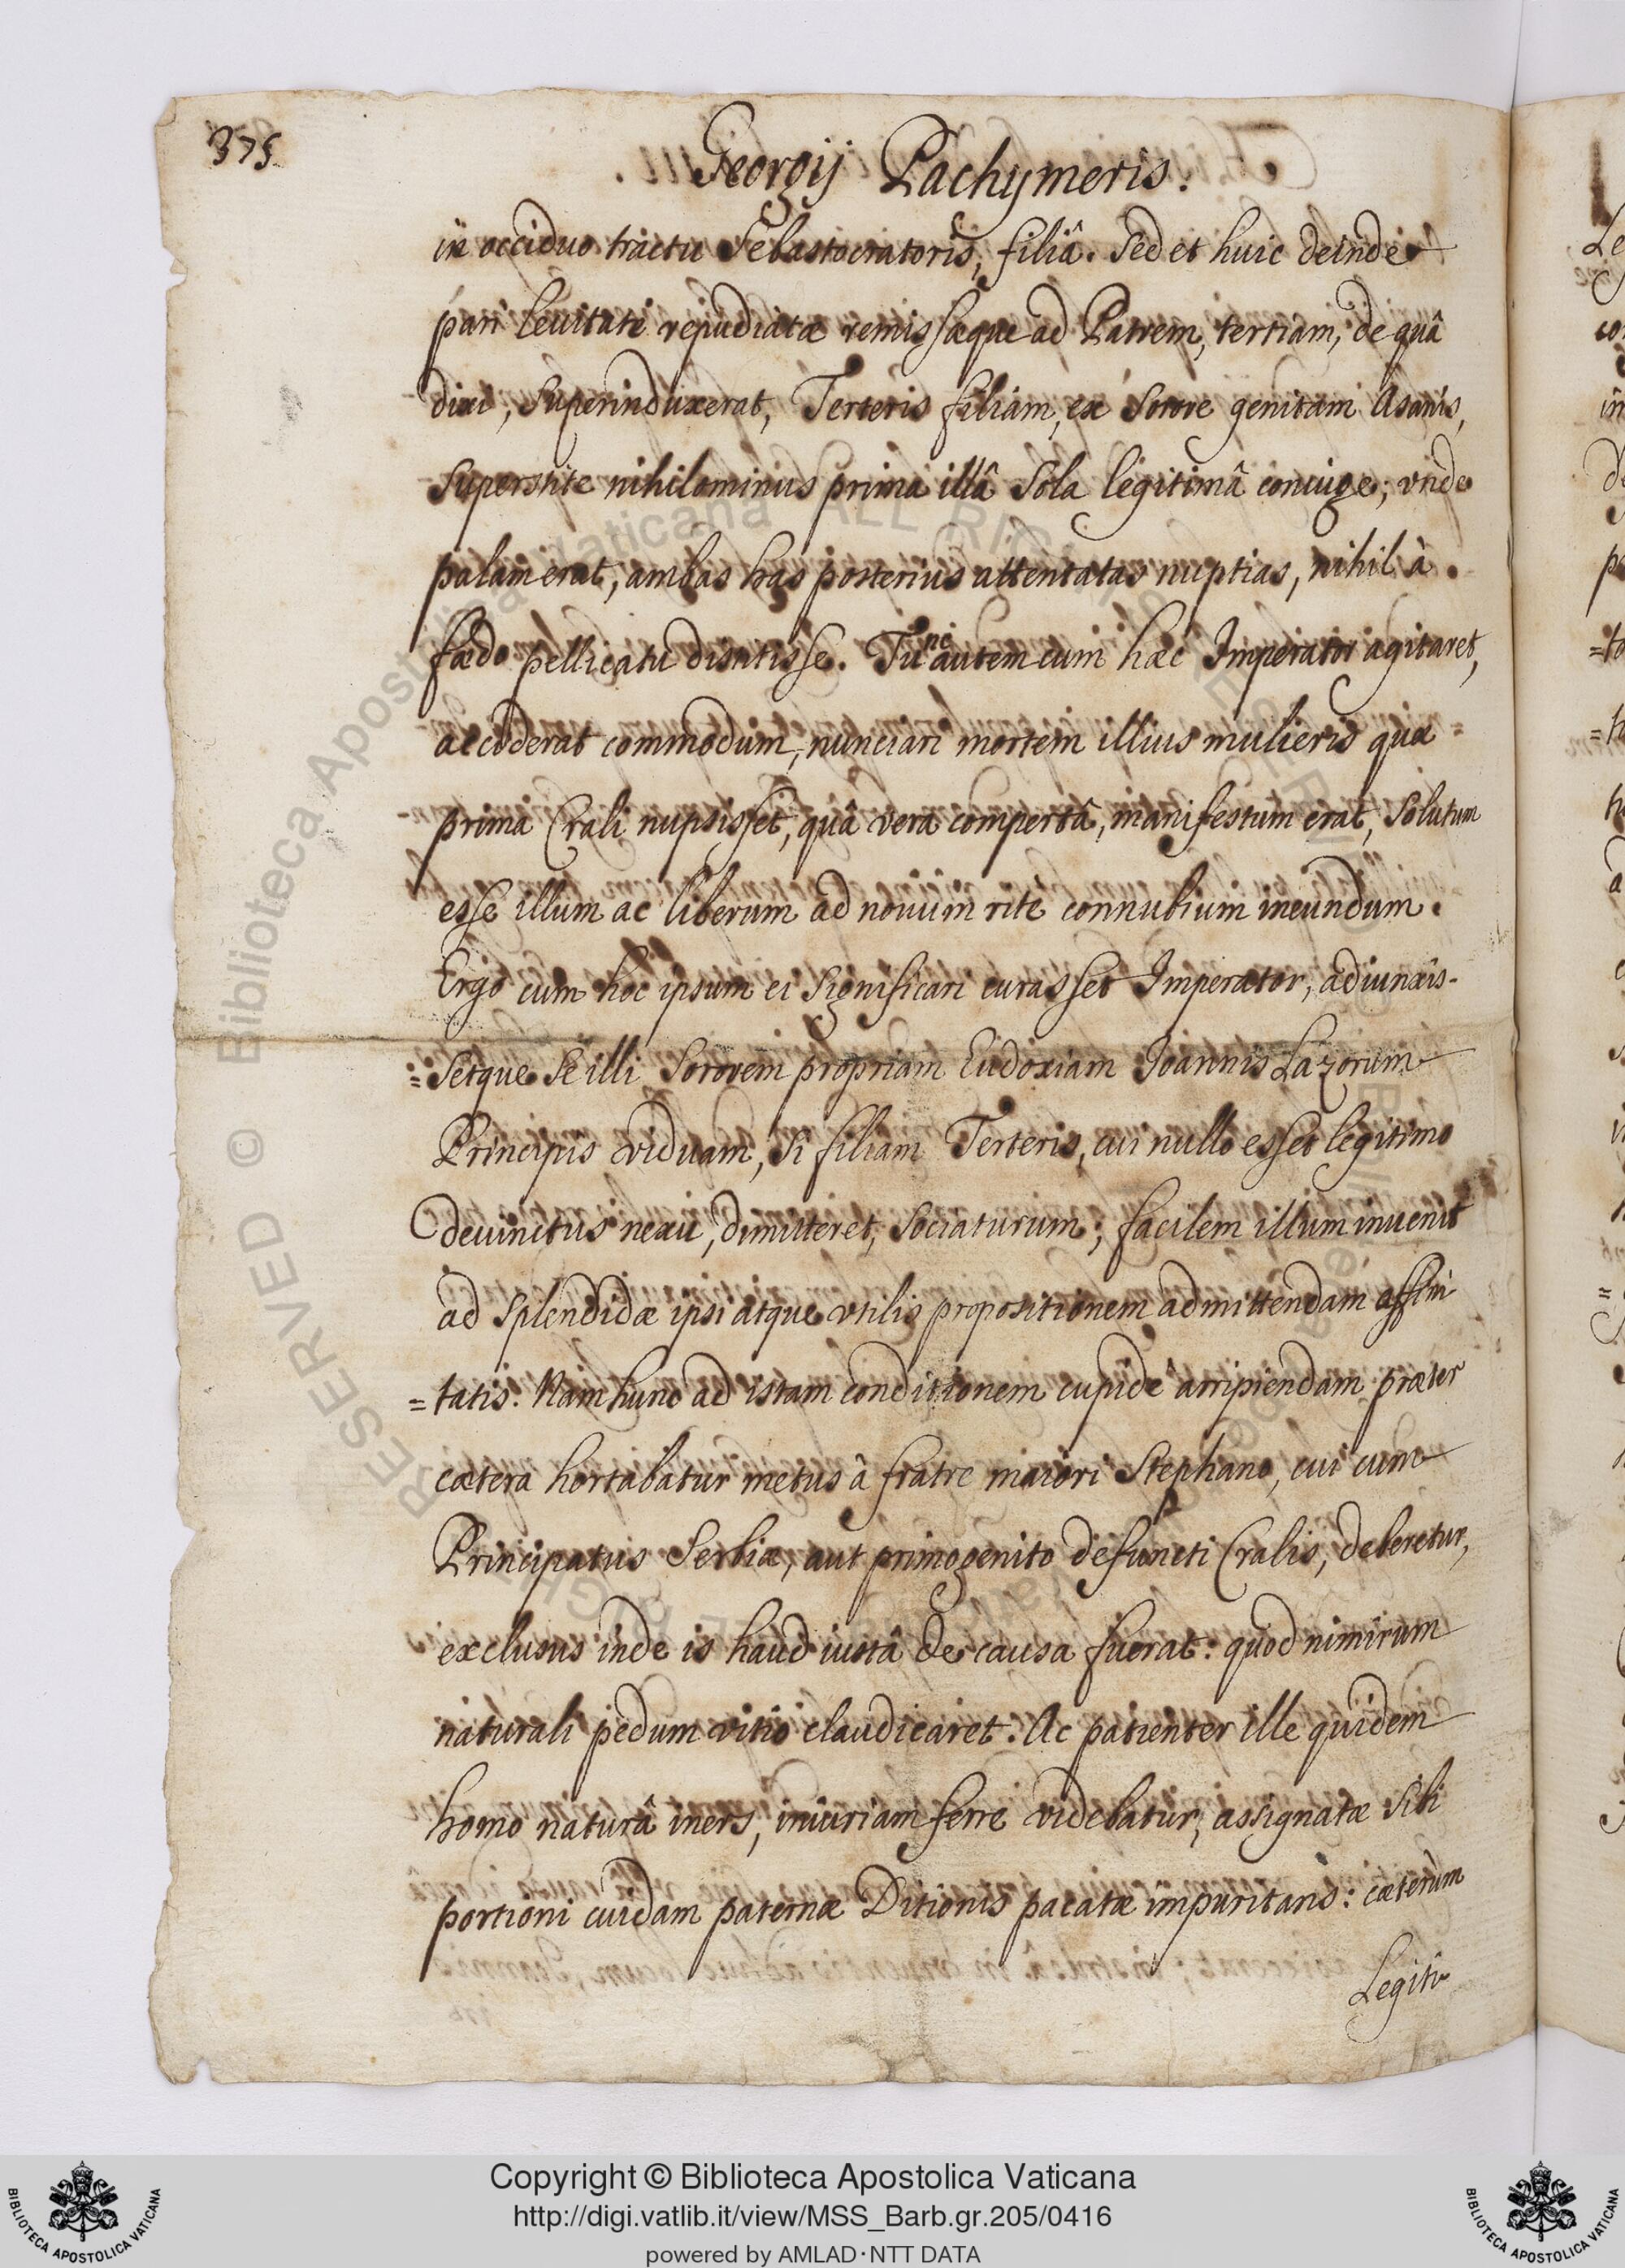 375
Georgij Pachymeris.
in occiduo tractu Sebastocratoris, filiâ. Sed et huic deinde
pari leuitate repudiatæ remissæque ad Patrem, tertiam, de quâ
dixi, superinduxerat, Terteris filiam, ex Sorore genitam Asanis,
superstite nihilominus prima illâ sola legitimâ coniuge; vnde
palam erat, ambas has posterius attentatas nuptias, nihil à
fœdo pellicatu distitisse. Tunc autem cum hæc Imperator agitaret,
acciderat commodum, nunciari mortem illius mulieris quæ
prima Crali nupsisset, quâ vera compertâ, manifestum erat, solutum
esse illum ac liberum ad nouum ritè connubium ineundum.
Ergo cum hoc ipsum ei significari curasset Imperator, adiunxis-
=setque se illi Sororem propriam Eudoxiam Joannis Lazorum
Principis viduam, si filiam Terteris, cui nullo esset legitimo
deuinctus nexu, dimitteret, sociaturum; facilem illum inuenit
ad splendidæ ipsi atque vtilis propositionem admittendam affini
=tatis. Nam hunc ad istam conditionem cupidè arripiendam præter
cætera hortabatur metus à fratre maiori Stephano, cui cum
Principatus Serbiæ, aut primogenito defuncti Cralis, deberetur,
exclusus inde is haud iustâ de causa fuerat: quod nimirum
naturali pedum vitio claudicaret. Ac patienter ille quidem
homo naturâ iners, iniuriam ferre videbatur, assignatæ sibi
portioni cuidam paternæ Ditionis pacatæ impuritans: cæterùm
Legiti
Copyright © Biblioteca Apostolica Vaticana
http://digi.vatlib.it/view/MSS_Barb.gr.205/0416
powered by AMLAD·NTT DATA